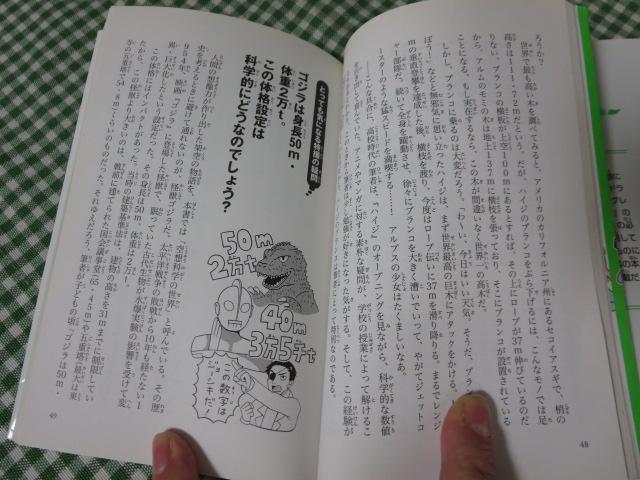 ろうか？
世界で最も高い木を調べてみると、アメリカのカリフォルニア州にあるセコイアスギで、梢の
高さは111・72mだという。だが、ハイジのブランコをぶら下げるには、こんなモノでは足
りない。ブランコの横板が上空100mにあるとすれば、その上にロープが37m伸びているのだ
から、アルムのモミの木は地上137mに横枝を張っており、そこにブランコが設置されている
ことになる。もし実在するなら、この木が間違いなく世界一の高木だ。
しかし、ブランコに乗るのは大変だろう。「わーい、今日はいい天気。そうだ、ブラン
ぼう！」などと無邪気に思い立ったハイジは、まず世界最高の巨木にアタックをかける。
mの垂直登攀を達成した後、横枝を渡り、今度はロープ伝いに37mを滑り降りる。まるでレンジ
ャー部隊だ。続いて全身を躍動させ、徐々にブランコを大きく漕いでいって、やがてジェットコ
ースターのような猛スピードを満喫する……！　アルプスの少女はたくましいなあ。
――こんな具合に、高校時代の筆者は、『ハイジ』のオープニングを見ながら、科学的な数値
アニメやマンガに対する素朴な疑問が、学校の授業によって解けるこ
勉強が好きになった気がする。そして、この経験が
って特別なのである。
48
とっても気になる特撮の疑問
ゴジラは身長50m・
体重2万t。
この体格設定は
科学的にどうなのでしょう？
50m
2万t
40m
3万5千t
この数字は
ジョーシキだ！
人間の想像力が作り出した架空の物語を、本書では「空想科学の世界」と呼んでいる。その歴
史を考えるときに避けて通れないのが、怪獣ゴジラだ。太平洋戦争の敗戦から10年も経たない1
954年、映画『ゴジラ』に登場した怪獣で、眠っていた古代生物が、水爆実験の影響を受けて変
異・巨大化したという設定だった。その身長は50m、体重は2万t。
この体格にはインパクトがあった。当時の建築基準法は、建物の高さを31mまでに制限してい
たから、この怪獣より大きいのは、戦前に建てられた国会議事堂（65・45m）や五重塔（最大は東
寺の五重塔で54・8m）くらいのものだった。それゆえだろう、筆者が子どもの頃「ゴジラは50m・
49